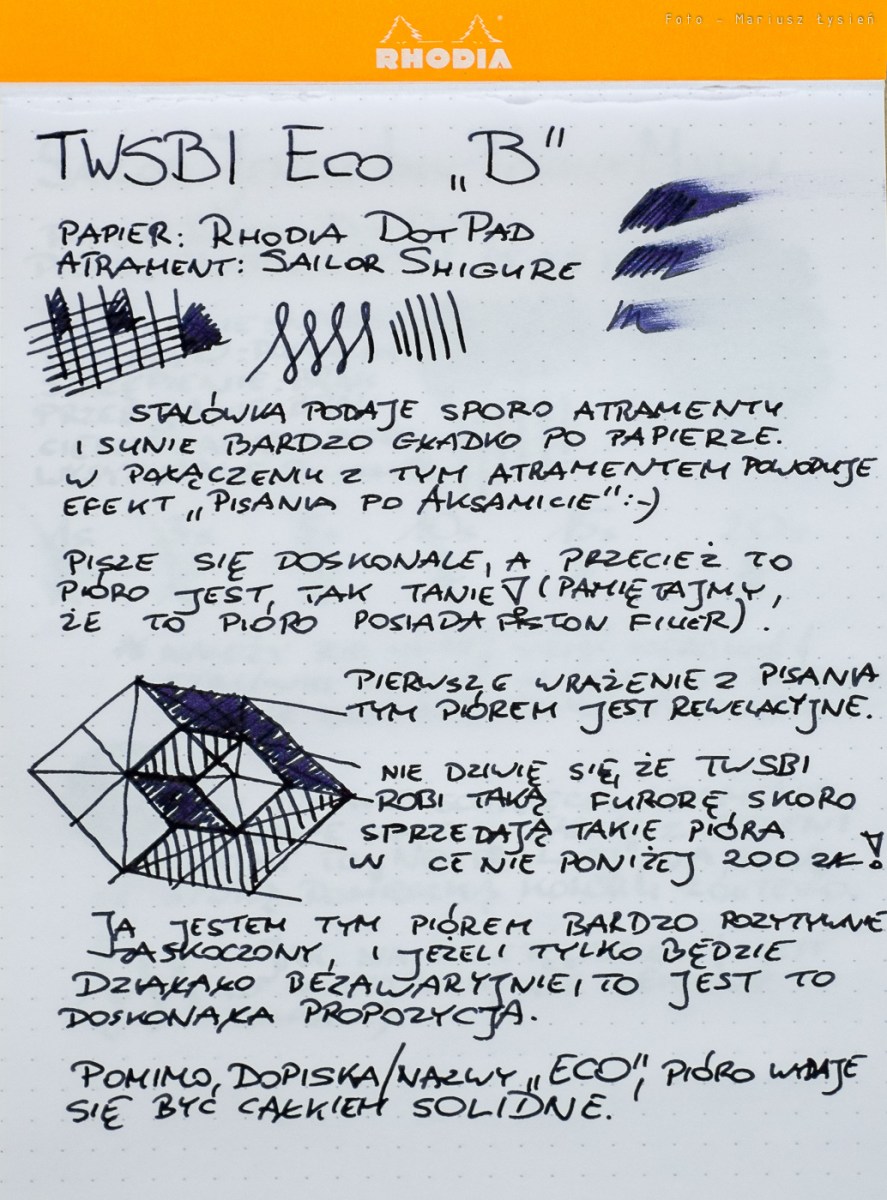 Foto - Mariusz Łysień
RHODIA
TWSBI Eco „B"
PAPIER: RHODIA DOTPAD
ATRAMENT: SAILOR SHIGURE
STALÓWKA PODAJE SPORO ATRAMENTU
I SUNIE BARDZO GŁADKO PO PAPIERZE.
W POŁĄCZENIU Z TYM ATRAMENTEM POWODUJE
EFEKT „PISANIA PO AKSAMICIE" :-)
PISZE SIĘ DOSKONALE, A PRZECIEŻ TO
PIÓRO JEST TAK TANIE! (PAMIĘTAJMY,
ŻE TO PIÓRO POSIADA PISTON FILLER).
PIERWSZE WRAŻENIE Z PISANIA
TYM PIÓREM JEST REWELACYJNE.
NIE DZIWIĘ SIĘ, ŻE TWSBI
ROBI TAKĄ FURORĘ SKORO
SPRZEDAJĄ TAKIE PIÓRA
W CENIE PONIŻEJ 200 ZŁ!
JA JESTEM TYM PIÓREM BARDZO POZYTYWNIE
ZASKOCZONY, I JEŻELI TYLKO BĘDZIE
DZIAŁAŁO BEZAWARYJNIE, TO JEST TO
DOSKONAŁA PROPOZYCJA.
POMIMO, DOPISKA/NAZWY „ECO", PIÓRO WYDAJE
SIĘ BYĆ CAŁKIEM SOLIDNE.